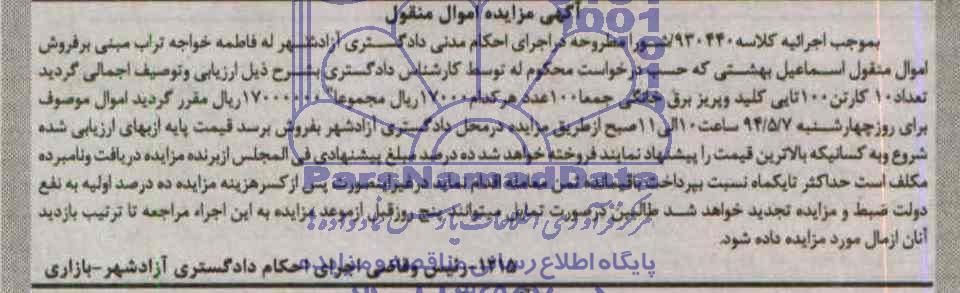 آگهی مزایده اموال منقول
بموجب اجرائیه کلاسه ۹۳۰۴۴۰/شورا مطروحه در اجرای احکام مدنی دادگستری آزادشهر له فاطمه خواجه تراب مبنی بر فروش
اموال منقول اسماعیل بهشتی که حسب درخواست محکوم له توسط کارشناس دادگستری بشرح ذیل ارزیابی وتوصیف اجمالی گردید
تعداد ۱۰ کارتن ۱۰۰تایی کلید وپریز برق خانگی جمعا ۱۰۰ عدد هرکدام ۱۷۰۰۰ ریال مجموعا ۱۷۰۰۰۰۰۰ ریال مقرر گردید اموال موصوف
برای روز چهارشنبه ۹۴/۵/۷ ساعت ۱۰ الی ۱۱ صبح ازطریق مزایده درمحل دادگستری آزادشهر بفروش برسد قیمت پایه ازبهای ارزیابی شده
شروع وبه کسانیکه بالاترین قیمت را پیشنهاد نمایند فروخته خواهد شد ده درصد مبلغ پیشنهادی فی المجلس ازبرنده مزایده دریافت ونامبرده
مکلف است حداکثر تایکماه نسبت بپرداخت باقیمانده ثمن معامله اقدام نماید درغیراینصورت پس ازکسرهزینه مزایده ده درصد اولیه به نفع
دولت ضبط و مزایده تجدید خواهد شد طالبین درصورت تمایل میتوانند پنج روزقبل ازموعد مزایده به این اجراء مراجعه تا ترتیب بازدید
آنان ازمال مورد مزایده داده شود.
۱۲۱۵-رئیس وقاضی اجرای احکام دادگستری آزادشهر-بازاری
ParsNamadData
پایگاه اطلاع رسانی مناقصه و مزایده